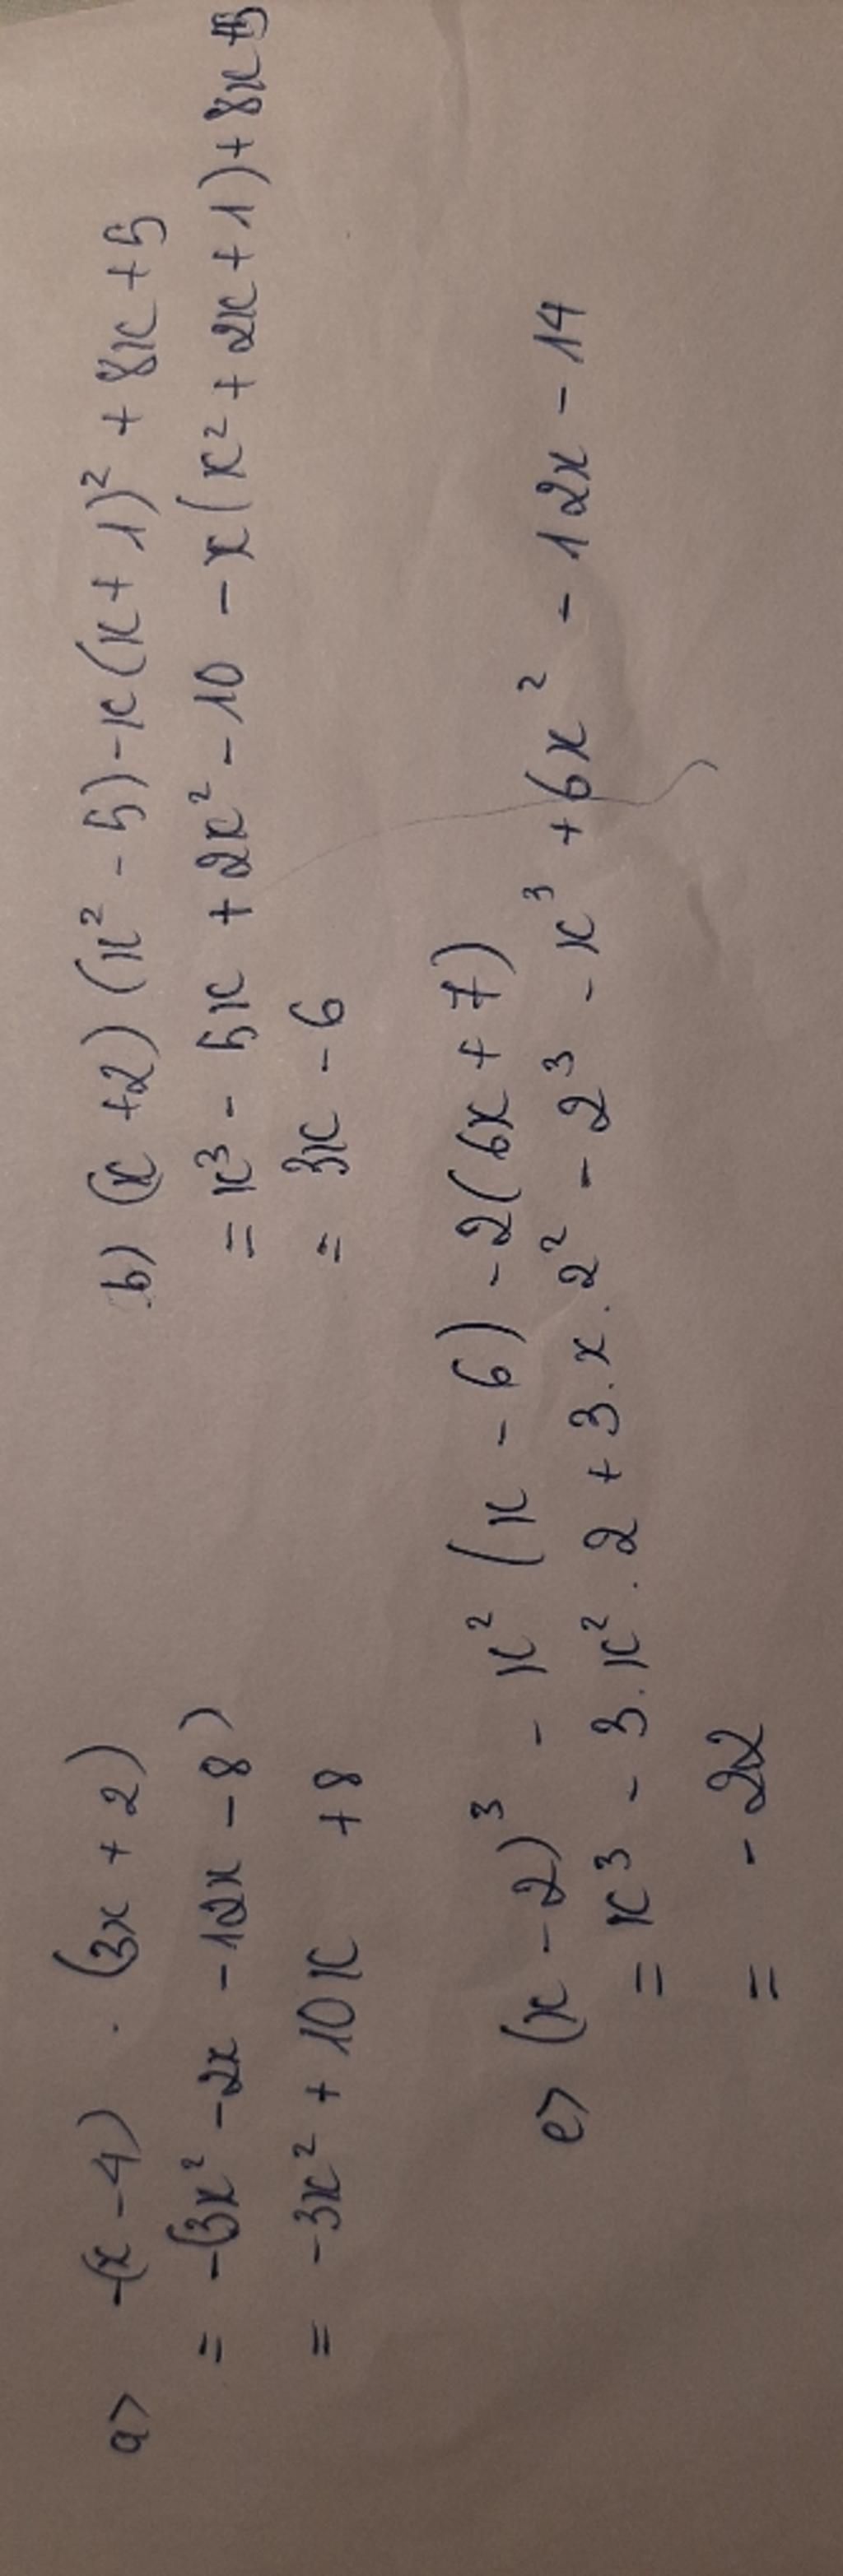 a) -(x - 4) . (3x + 2)
= -(3x² - 2x - 12x - 8)
= -3x² + 10x + 8
b) (x + 2) (x² - 5) - x(x + 1)² + 8x + 5
= x³ - 5x + 2x² - 10 - x(x² + 2x + 1) + 8x + 5
= 3x - 6
e) (x - 2)³ - x² (x - 6) - 2(6x + 7)
= x³ - 3.x².2 + 3.x.2² - 2³ - x³ + 6x² - 12x - 14
= - 22